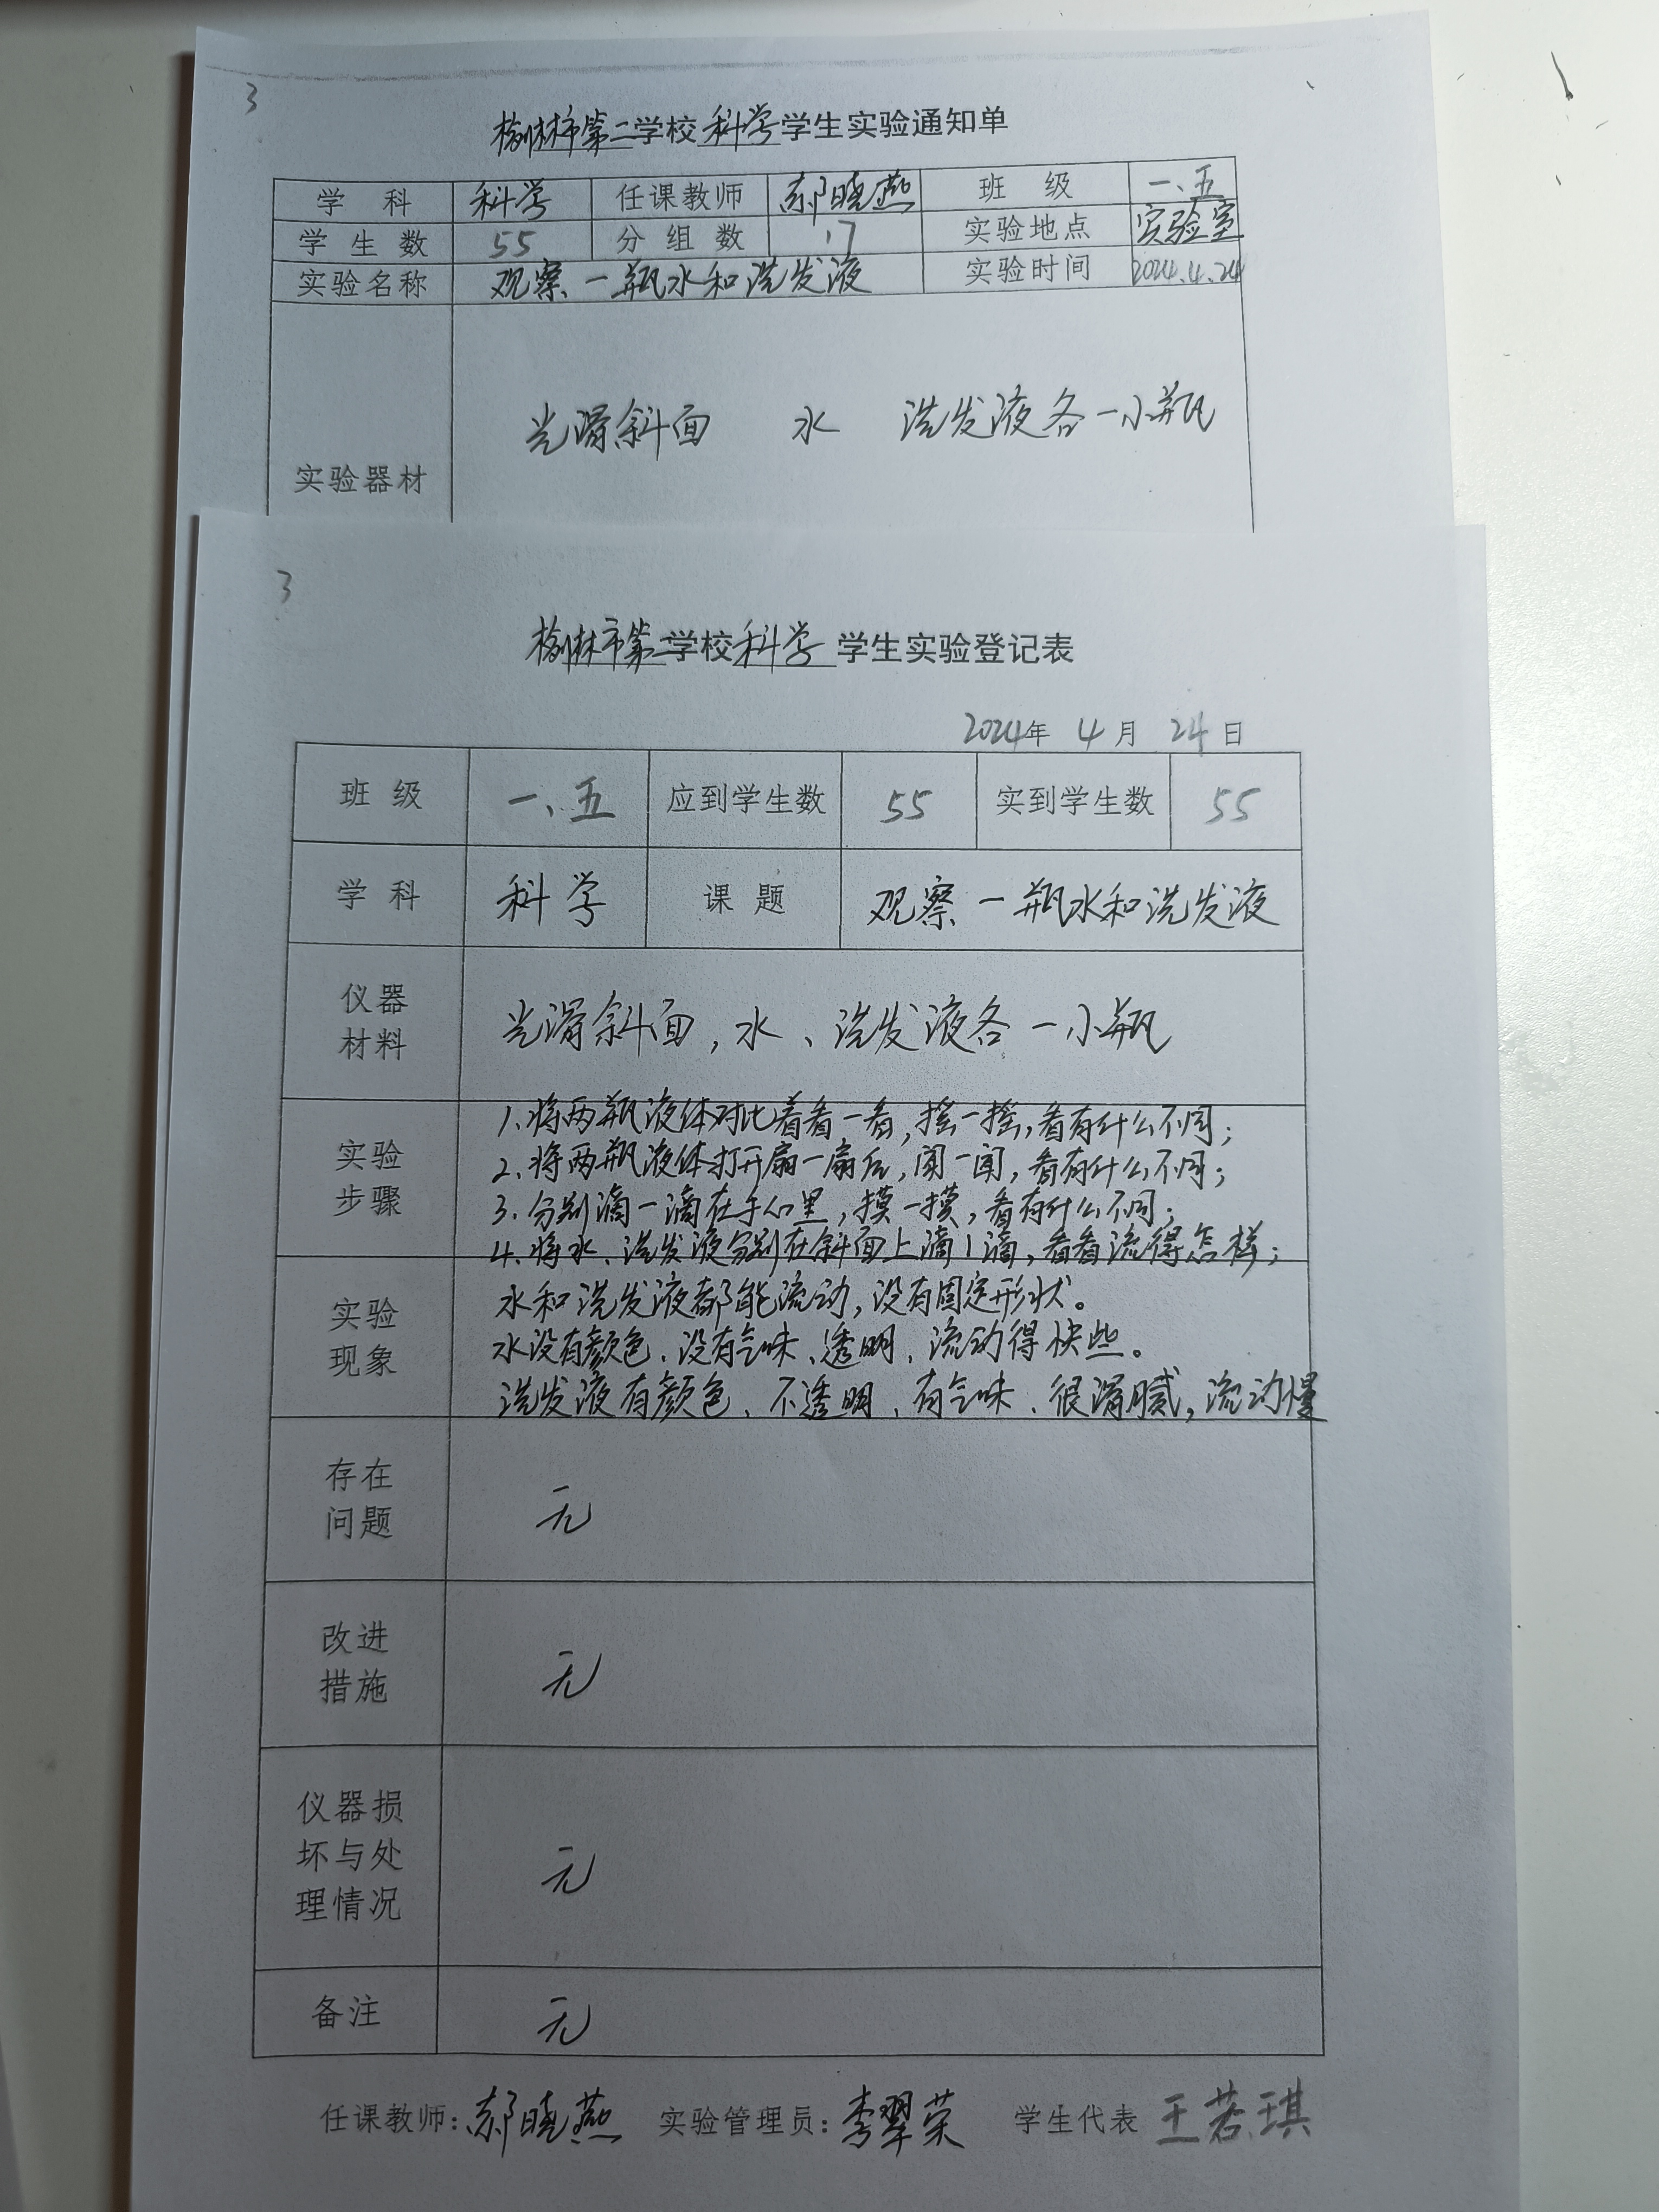 3
榆林市第二学校科学学生实验通知单
学 科 科学 任课教师 郝晓燕 班 级 一、五
学生数 55 分组数 17 实验地点 实验室
实验名称 观察一瓶水和洗发液 实验时间 2024.4.24
实验器材 光滑斜面 水 洗发液各一小瓶
3
榆林市第二学校科学 学生实验登记表
2024年 4月 24日
班 级 一、五 应到学生数 55 实到学生数 55
学 科 科学 课 题 观察一瓶水和洗发液
仪器
材料
光滑斜面,水、洗发液各一小瓶
实验
步骤
1.将两瓶液体对比着看一看,摇一摇,看有什么不同;
2.将两瓶液体打开扇一扇后,闻一闻,看有什么不同;
3.分别滴一滴在手心里,摸一摸,看有什么不同;
4.将水、洗发液分别在斜面上滴1滴,看看流得怎样;
实验
现象
水和洗发液都能流动,没有固定形状。
水没有颜色、没有气味、透明、流动得快些。
洗发液有颜色、不透明、有气味、很滑腻,流动慢
存在
问题
无
改进
措施
无
仪器损
坏与处
理情况
无
备注 无
任课教师:郝晓燕 实验管理员:李翠荣 学生代表 王若琪